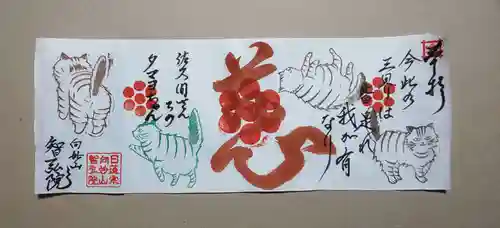 今此の
三界は
皆是れ
我が有
なり
慈
佐久間さん
ちの
タマちゃん
向妙山
智弘院
日蓮宗
向妙山
智弘院